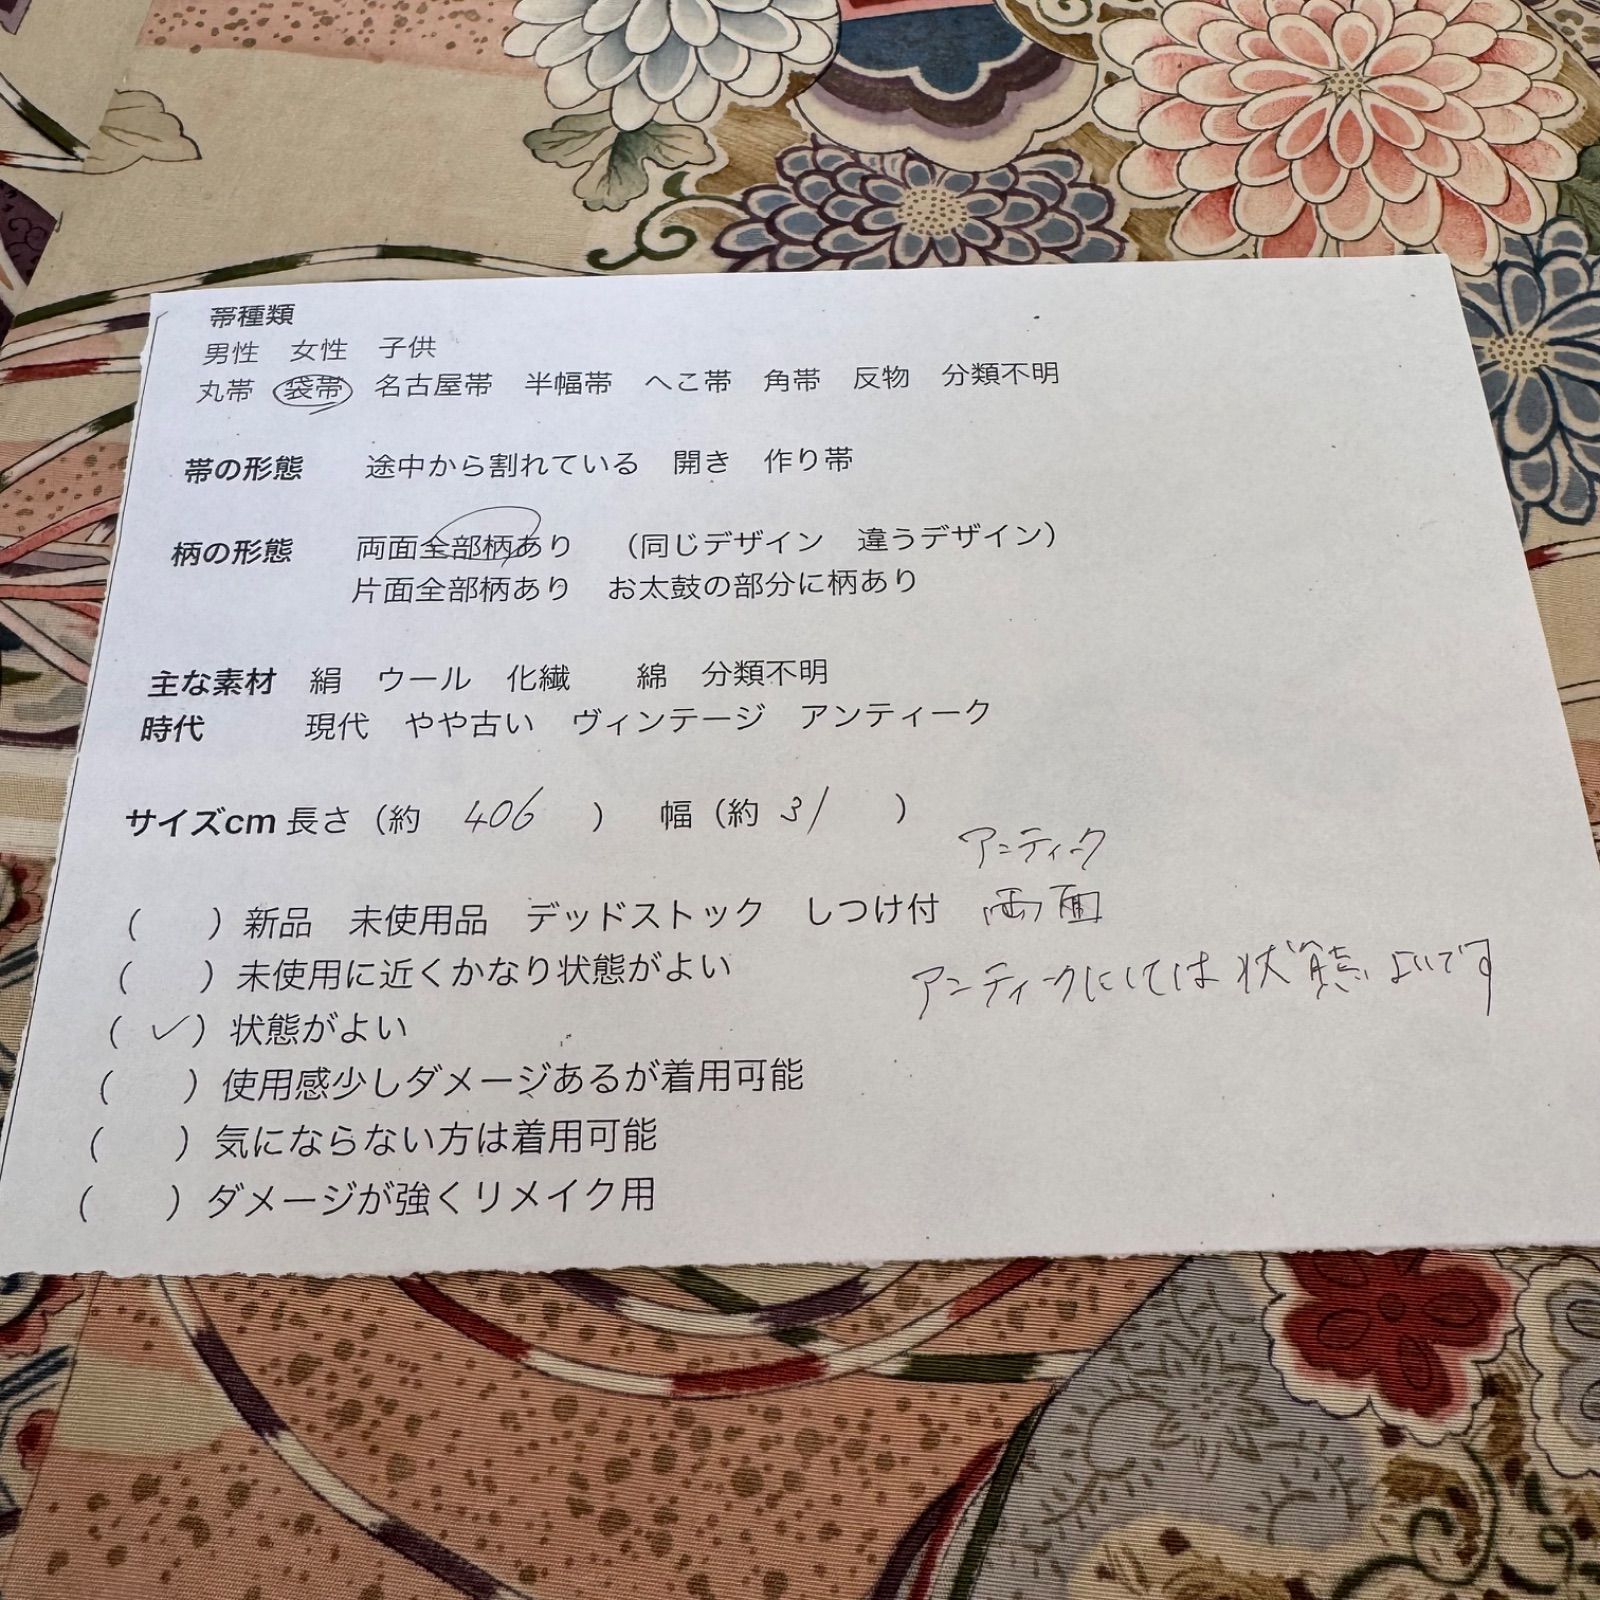 帯種類
男性　女性　子供
丸帯　袋帯　名古屋帯　半幅帯　へこ帯　角帯　反物　分類不明
帯の形態　途中から割れている　開き　作り帯
柄の形態　両面全部柄あり　（同じデザイン　違うデザイン）
片面全部柄あり　お太鼓の部分に柄あり
主な素材　絹　ウール　化繊　綿　分類不明
時代　現代　やや古い　ヴィンテージ　アンティーク
サイズcm 長さ（約　406　）　幅（約　31　）
アンティーク
（　）新品　未使用品　デッドストック　しつけ付　両面
（　）未使用に近くかなり状態がよい
アンティークにしては状態よいです
（✓）状態がよい
（　）使用感少しダメージあるが着用可能
（　）気にならない方は着用可能
（　）ダメージが強くリメイク用